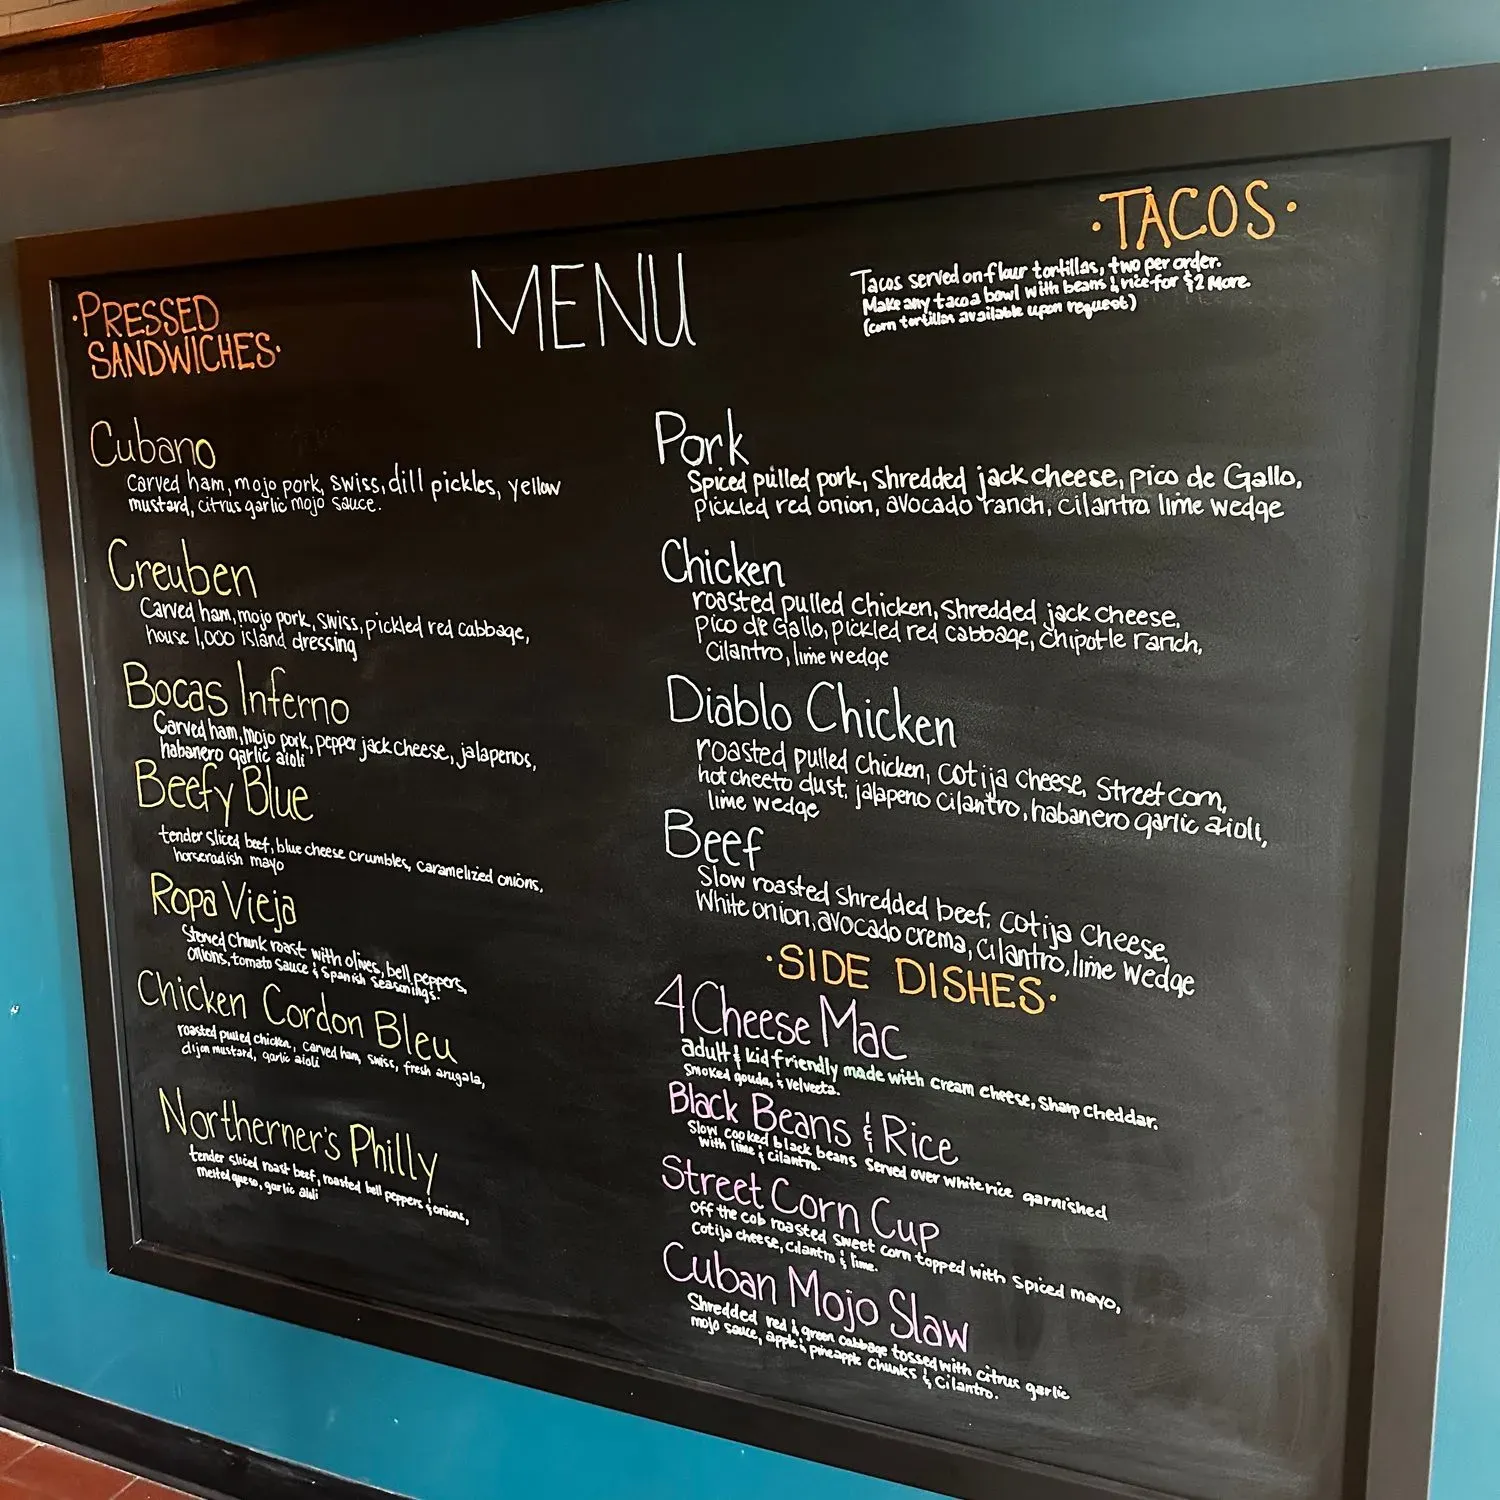 MENU
·PRESSED
SANDWICHES·
Cubano
carved ham, mojo pork, swiss, dill pickles, yellow
mustard, citrus garlic mojo sauce.
Creuben
Carved ham, mojo pork, swiss, pickled red cabbage,
house 1,000 island dressing
Bocas Inferno
Carved ham, mojo pork, pepper jack cheese, jalapenos,
habanero garlic aioli
Beefy Blue
tender sliced beef, blue cheese crumbles, caramelized onions,
horseradish mayo
Ropa Vieja
Stewed Chunk roast with olives, bell peppers,
onions, tomato sauce & Spanish seasonings.
Chicken Cordon Bleu
roasted pulled chicken, carved ham, swiss, fresh arugala,
dijon mustard, garlic aioli
Northerner's Philly
tender sliced roast beef, roasted bell peppers & onions,
melted queso, garlic aioli
·TACOS·
Tacos served on flour tortillas, two per order.
Make any taco a bowl with beans & rice for $2 More.
(corn tortillas available upon request)
Pork
Spiced pulled pork, Shredded jack cheese, pico de Gallo,
pickled red onion, avocado ranch, cilantro lime wedge
Chicken
roasted pulled chicken, Shredded jack cheese,
Pico de Gallo, pickled red cabbage, chipotle ranch,
Cilantro, lime wedge
Diablo Chicken
roasted pulled chicken, cotija cheese, Street corn,
hot cheeto dust, jalapeno cilantro, habanero garlic aioli,
lime wedge
Beef
Slow roasted shredded beef, cotija cheese,
White onion, avocado crema, cilantro, lime wedge
·SIDE DISHES·
4 Cheese Mac
adult & kid friendly made with cream cheese, sharp cheddar,
smoked gouda, & velveeta.
Black Beans & Rice
Slow cooked black beans served over white rice garnished
with lime & cilantro.
Street Corn Cup
off the cob roasted sweet corn topped with spiced mayo,
Cotija cheese, cilantro & lime.
Cuban Mojo Slaw
Shredded red & green cabbage tossed with citrus garlic
mojo sauce, apple & pineapple chunks & Cilantro.